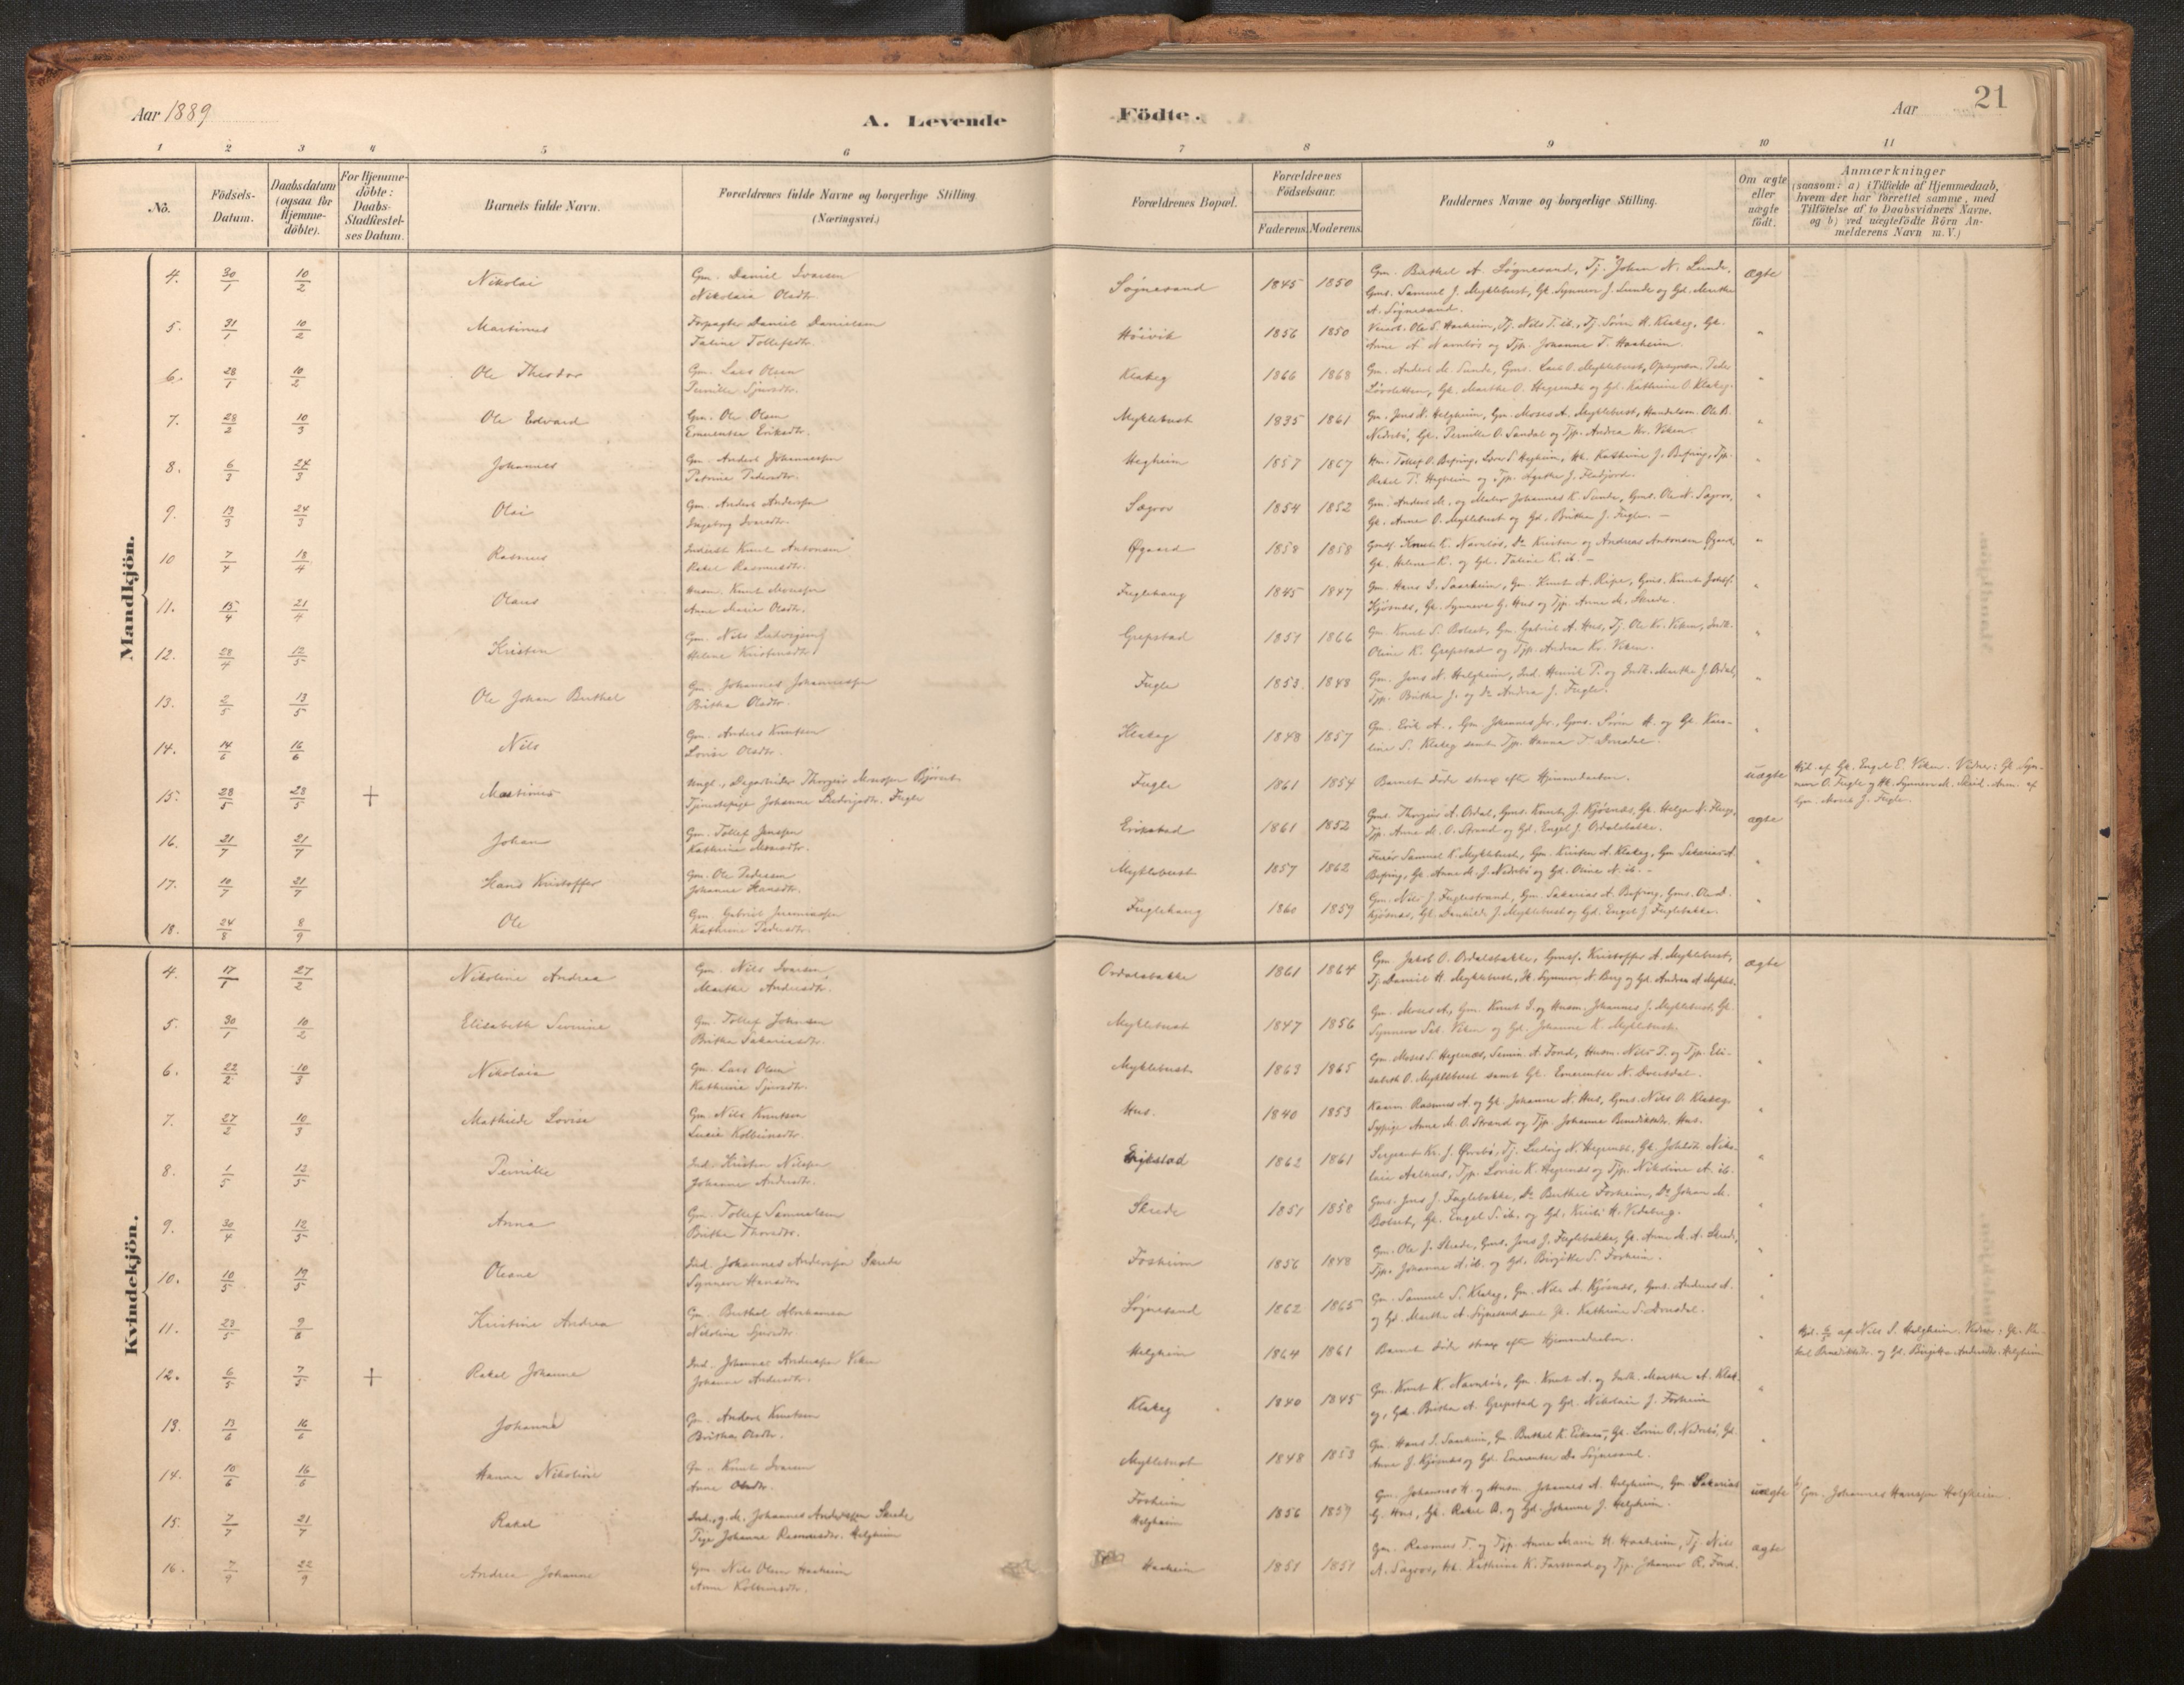 Aar 1889
A. Levende
Födte.
Aar
21
1 2 3 4 5 6 7 8 9 10 11
No.
Födsels-Datum.
Daabsdatum (ogsaa for Hjemme-döbte).
For Hjemme-döbte: Daabs-Stadfæstel-ses Datum.
Barnets fulde Navn.
Forældrenes fulde Navne og borgerlige Stilling (Næringsvei.)
Forældrenes Bopæl.
Forældrenes Födselsaar.
Faderens. Moderens.
Faddernes Navne og borgerlige Stilling.
Om ægte eller uægte födt.
Anmærkninger
(saasom: a) i Tilfælde af Hjemmedaab, hvem der har forrettet samme, med Tilföielse af to Daabsvidners Navne, og b) ved uægtefödte Börn An-melderens Navn m. V.)
Mandkjön.
4. 30/1 10/2 Nikolai Gm. Daniel Ivarsen
Nikolaia Olsdtr. Søgnesand 1845 1850 Gm. Berthel A. Søgnesand, Tj. Johan N. Lunde, ægte
Gms. Samuel J. Myklebust, Gk. Synneve J. Lunde og Gd. Marthe
A. Søgnesand.
5. 31/1 10/2 Martinus Forpagter Daniel Danielsen
Taline Tollefsdtr. Høivik 1856 1850 Ole S. Haaheim, Tj. Nils T. ib., Tj. Søren H. Klakeg, Gk.
Anne A. Navnløs og Tjp. Johanne T. Haaheim.
6. 28/1 10/2 Ole Theodor Gm. Lars Olsen
Pernille Sjursdtr. Klakeg 1866 1868 Gm. Anders M. Sunde, Gms. Lars O. Myklebust, Opsynsm. Peder
Gk. Marthe O. Hegrenæs og Gd. Kathrine O. Klakeg.
7. 28/2 10/3 Ole Edvard Gm. Ole Olsen
Emerentse Eriksdtr. Myklebust 1835 1861 Gm. Jens N. Helgheim, Gm. Moses A. Myklebust, Handelsm. Ole B.
Nedrebø, Gk. Pernille O. Sandal og Tjp. Andrea Kr. Viken.
8. 6/3 24/3 Johannes Gm. Anders Johannessen
Petrine Pedersdtr. Hegheim 1857 1867 Hm. Tollef O. Befring, S. Hegheim, Hk. Kathrine J. Befring, Tjp.
Rakel T. Hegheim og Tjp. Agathe J. Flatjord.
9. 13/3 24/3 Olai Gm. Anders Anderssen
Ingeborg Ivarsdtr. Sægrov 1854 1852 Gm. Anders M. og Maler Johannes K. Sunde, Gms. Ole N. Sægrov,
Gk. Anne O. Myklebust og Gd. Brithe J. Fugle.
10 7/4 18/4 Rasmus Inderst Knut Antonsen
Rakel Rasmusdtr. Øgaard 1858 1858 Gmsf. Knut K. Navnløs, Do Kristen og Andreas Antonsen Øgaard,
Gk. Helene K. og Gd. Taline K. ib.
11. 15/4 21/4 Olaus Husm. Knut Monssen
Anne Marie Olsdtr. Fuglehaug 1845 1847 Gm. Hans I. Saarheim, Gm. Knut A. Ripe, Gms. Knut
Kjøsnæs, Gk. Synneve G. Hus og Tjp. Anne M. Skrede.
12. 28/4 12/5 Kristen Gm. Nils Ludvigsen
Helene Kristensdtr. Grepstad 1851 1866 Gm. Knut S. Bolset, Gm. Gabriel A. Hus, Tj. Ole Kr. Viken, Indk.
Oline K. Grepstad og Tjp. Andrea Kr. Viken.
13. 2/5 13/5 Ole Johan Berthel Gm. Johannes Johannessen
Brithe Olsdtr. Fugle 1853 1848 Gm. Jens N. Helgheim, Ind. Henrik T. og Indk. Marthe J. Ordal,
Tjp. Brithe J. og Do Andrea J. Fugle.
14. 14/6 16/6 Nils Gm. Anders Knutsen
Lovise Olsdtr. Klakeg 1848 1857 Gm. Erik A., Gm. Johannes Jr., Gms. Søren A. og Gk. Karo-
line S. Klakeg samt Tjp. Hanna T. Dvesdal.
15. 28/5 28/5 + Martinus Ungk., Dagarbeider Thorgeir Monssen Bjørset
Tjenestepige Johanne Ludvigsdtr. Fugle Fugle 1861 1854 Barnet døde strax efter Hjemmedaaben. uægte Hjd. af Gk. Engel E. Viken. Vidner: Gk. Syn-
neve O. Fugle og Hk. Synneve M. Anm. af
Gm. Mons J. Fugle.
16. 21/7 21/7 Johan Gm. Tollef Jenssen
Kathrine Monsdtr. Erikstad 1861 1852 Gms. Thorgeir A. Ordal, Gms. Knut J. Kjøsnæs, Gk. Helga A. Flugge,
Tjp. Anne M. O. Strand og Gd. Engel J. Ordalsbakke. ægte
17. 10/7 21/7 Hans Kristoffer Gm. Ole Pedersen
Johanne Hansdtr. Myklebust 1857 1862 Samuel K. Myklebust, Gm. Kristen A. Klakeg, Gm. Sakarias A.
Befring, Gk. Anne M. J. Nedrebø og Gd. Oline N. ib.
18. 24/8 8/9 Ole Gm. Gabriel Jeremiassen
Kathrine Pedersdtr. Fuglehaug 1860 1859 Gm. Nils J. Fuglestrand, Gm. Sakarias A. Befring, Gms. Ole A.
Kjøsnæs, Gk. J. Myklebust og Gd. Engel J. Fuglebakke.
Kvindekjön.
4. 17/1 27/2 Nikoline Andrea Gm. Nils Ivarsen
Marthe Andersdtr. Ordalsbakke 1861 1864 Gm. Jakob O. Ordalsbakke, Gmsf. Kristoffer A. Myklebust,
Tj. Daniel H. Myklebust, Synneve N. Berg og Gd. Andrea A. Mykleb. ægte
5. 30/1 10/2 Elisabeth Severine Gm. Tollef Johnsen
Brithe Sakariasdtr. Myklebust 1847 1856 Gm. Moses A., Gm. Knut I. og Husm. Johannes J. Myklebust, Gk.
Synneve Sak. Viken og Gd. Johanne K. Myklebust.
6. 22/2 10/3 Nikolaia Gm. Lars Olsen
Kathrine Sjursdtr. Myklebust 1863 1865 Gm. Moses S. Hegrenæs, Semin. A. Fond, Husm. Nils T. og Tjp. Eli-
sabeth O. Myklebust samt Gk. Emerentse N. Dvesdal.
7. 27/2 10/3 Mathilde Lovise Gm. Nils Knutsen
Lucie Kolbeinsdtr. Hus. 1840 1853 Rasmus A. og Gk. Johanne N. Hus, Gms. Nils O. Klakeg,
Sypige Anne M. O. Strand og Tjp. Johanne Benediktsdtr. Hus.
8. 1/5 12/5 Pernille Ind. Kristen Nilssen
Johanne Andersdtr. Erikstad 1862 1861 Sergeant Kr. J. Øvrebø, Tj. Ludvig N. Hegrenæs, Gk. Nik-
laia Aalhus, Tjp. Lovise K. Hegrenæs og Tjp. Nikoline A. ib.
9. 30/4 12/5 Anna Gm. Tollef Samuelsen
Brithe Thoresdtr. Skrede 1851 1858 Gms. Jens J. Fuglebakke, Do Berthel Forsheim, Do Johan M.
Bolset, Gk. Engel S. ib. og Gd. Kristi H. Vedeberg.
10. 10/5 19/5 Oleane Ind. Johannes Anderssen Skrede
Synneve Hansdtr. Fosheim 1856 1848 Gm. Ole J. Skrede, Gms. Jens J. Fuglebakke, Gk. Anne M. A. Skrede,
Tjp. Johanne A. ib. og Gd. Birgitte S. Fosheim.
11. 23/5 9/6 Kirstine Andrea Gm. Berthel Abrahamsen
Nikoline Sjursdtr. Søgnesand 1862 1865 Gm. Samuel S. Klakeg, Gm. Nils A. Kjøsnæs, Gms. Andreas A.
og Gd. Marthe A. Søgnesand samt Gk. Kathrine S. Dvesdal.
12. 6/5 7/5 + Rakel Johanne Ind. Johannes Anderssen Viken
Johanne Andersdtr. Helgheim 1864 1861 Barnet døde strax efter Hjemmedaaben. Hjd. 6/5 af Nils S. Helgheim. Vidner: Gk. Ra-
kel Benediktsdtr. og Gd. Birgitte Andersdtr. Helgheim
13. 13/6 16/6 Johanne Gm. Anders Knutsen
Brithe Olsdtr. Klakeg 1840 1845 Gm. Knut K. Navnløs, Gm. Knut A. og Indk. Marthe A. Klak-
eg, Gd. Brithe A. Grepstad og Gd. Nikolaia J. Fosheim
14. 10/6 16/6 Hanna Nikoline Gm. Knut Ivarsen
Anne Olsdtr. Myklebust 1848 1853 Gm. Hans I. Saarheim, Gm. Berthel K. Eiknæs, Gk. Lovise O. Nedrebø, Gd.
Anne J. Kjøsnæs og Gd. Emerentse Da. Søgnesand.
15. 7/7 21/7 Rakel Ind., g. M. Johannes Anderssen Skrede
Pige Johanne Rasmusdtr. Helgheim Fosheim
Helgheim 1856 1859 Gm. Johannes H. og Husm. Johannes A. Helgheim, Gm. Sakarias
G. Hus, Gk. Rakel B. og Gd. Johanne J. Helgheim. uægte b) Gm. Johannes Hanssen Helgheim.
16. 7/9 22/9 Andrea Johanne Gm. Nils Olsen Haaheim
Anne Kolbeinsdtr. Haaheim 1851 1851 Gm. Rasmus T. og Tjp. Anne Marie H. Haaheim, Tj. Nils
A. Sægrov, Hk. Kathrine K. Farsund og Tjp. Johanne R. Fond. ægte